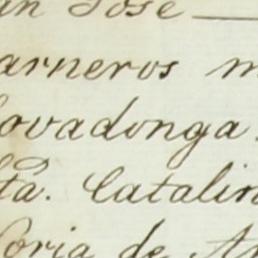 an José
arneros m
ovadonga.
ta. Catalin
oria de A